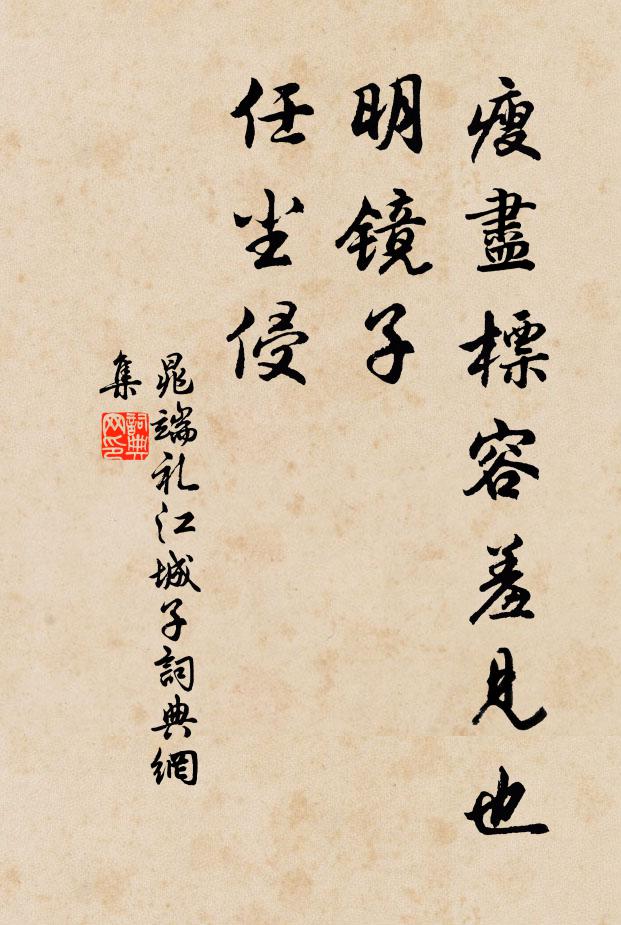 瘦盡標容羞見也
明镜子
任尘侵
晁端礼江城子詞典網
集
詞典网印